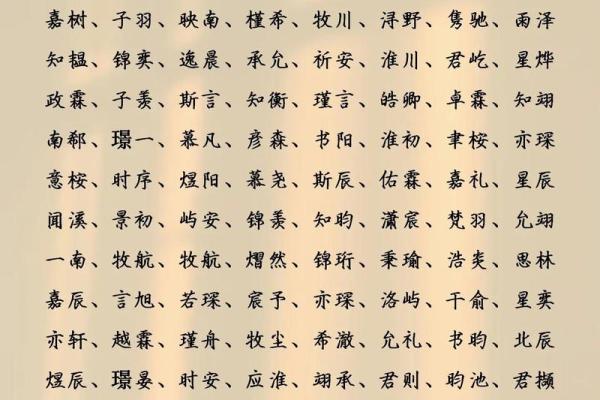 嘉树、子羽、映南、槿希、牧川、浔野、隽驰、雨泽
知韫、锦奕、逸晨、承允、祈安、淮川、君屹、星烨
政霖、子羡、斯言、知衡、瑾言、皓卿、卓霖、知翊
南郗、璟一、慕凡、彦森、书阳、淮初、聿桉、亦琛
意桉、时序、煜阳、慕尧、斯辰、佑霖、嘉礼、星辰
闻溪、景初、屿安、锦羡、知昀、潇宸、梵羽、允翊
一南、牧航、牧航、熠然、锦珩、秉瑜、浩炎、思林
嘉辰、言旭、若琛、宸予、亦琛、洛屿、干俞、星奕
亦轩、越霖、瑾舟、牧尘、希澈、允礼、书昀、北辰
煜辰、璟晏、时安、应淮、翊承、君则、昀池、君撷